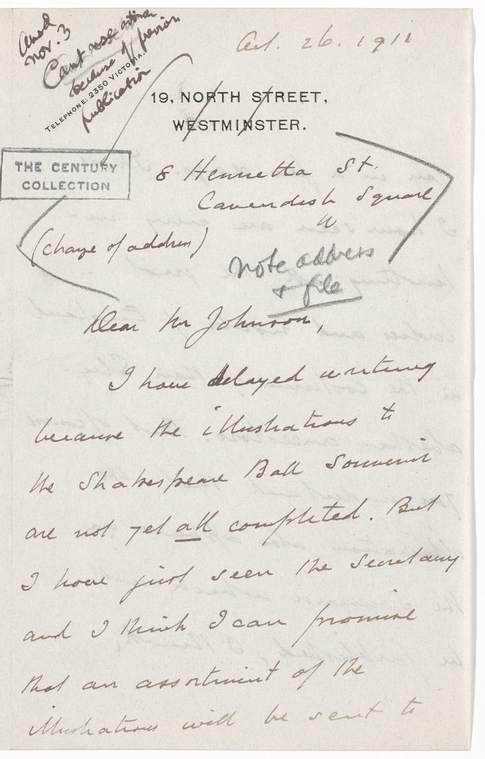 Ansd
Nov. 3
Can't use article
because of previous
publication
Oct. 26. 1911
TELEPHONE: 2350 VICTORIA.
19, NORTH STREET,
WESTMINSTER.
THE CENTURY
COLLECTION
8 Henrietta St.
Cavendish Square
W
(change of address)
Note address
& file
Dear Mr Johnson,
I have delayed writing
because the illustrations to
the Shakespeare Ball Souvenir
are not yet all completed. But
I have just seen the Secretary
and I think I can promise
that an assortment of the
illustrations will be sent to